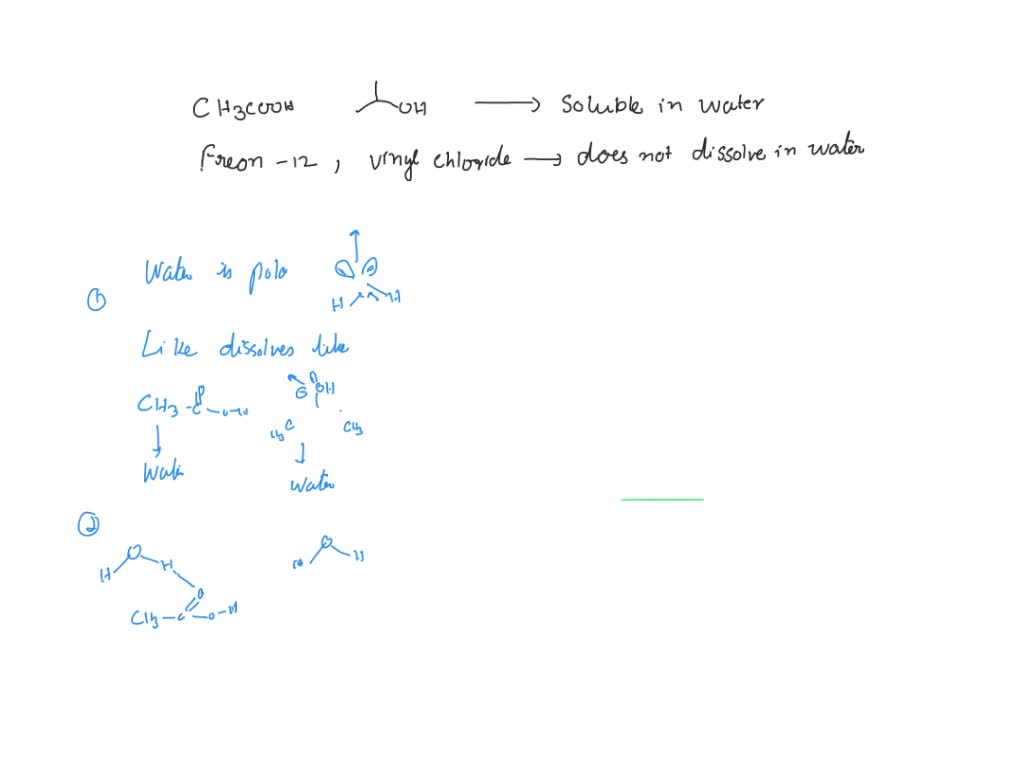 CH3COOH OH → Soluble in water
Freon -12, vinyl chloride → does not dissolve in water
Water is pola
①
H H
Like dissolves like
OH
CH3 - C - O - H
H3C CH3
Water
Water
②
O
H O H
H H
O
CH3 - C - O - H